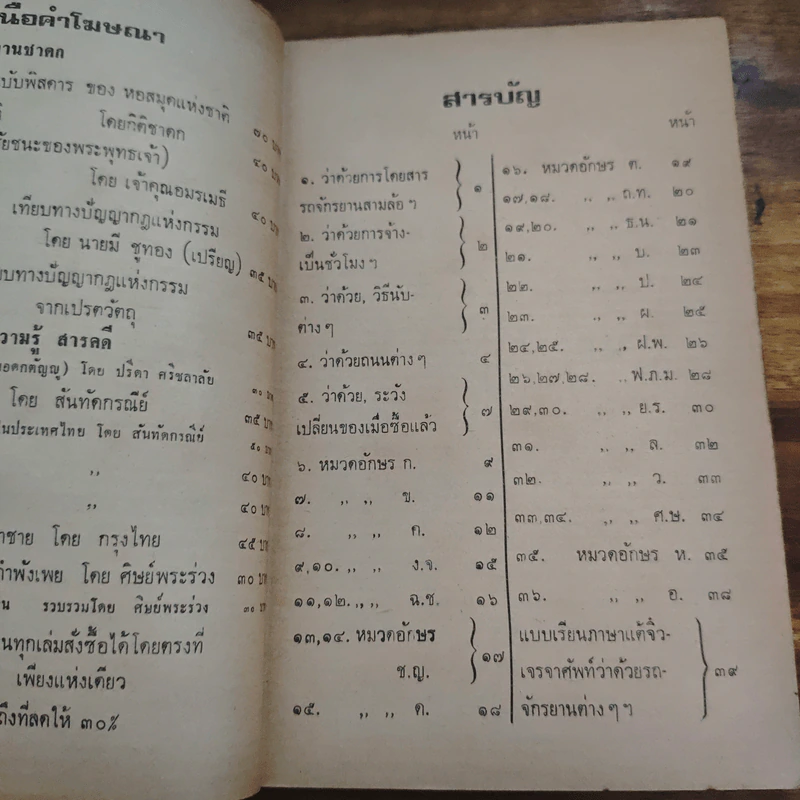 นือคำโฆษณา
านชาดก
บับพิสดาร ของ หอสมุดแห่งชาติ
โดยกิติชาดก ๗๐ บาท
ัยชนะของพระพุทธเจ้า)
โดย เจ้าคุณอมรเมธี ๔๐ บาท
เทียบทางปัญญากฎแห่งกรรม ๔๐ บาท
โดย นายมี ชูทอง (เปรียญ)
บทางปัญญากฎแห่งกรรม ๓๕ บาท
จากเปรตวัตถุ
วามรู้ สารคดี ๓๕ บาท
โดย ปรีดา ศรีชลาลัย
โดย สันทัดกรณีย์ ๓๐ บาท
นประเทศไทย โดย สันทัดกรณีย์ ๓๕ บาท
,, ๕๐ บาท
,, ๔๐ บาท
๔๐ บาท
าชาย โดย กรุงไทย ๔๕ บาท
ำพังเพย โดย ศิษย์พระร่วง ๓๐ บาท
น รวบรวมโดย ศิษย์พระร่วง ๓๐ บาท
นทุกเล่มสั่งซื้อได้โดยตรงที่
เพียงแห่งเดียว
ถึงที่ลดให้ ๓๐%
สารบัญ
หน้า
๑. ว่าด้วยการโดยสาร
รถจักรยานสามล้อ ฯ ๑
๒. ว่าด้วยการจ้าง-
เป็นชั่วโมง ฯ ๒
๓. ว่าด้วย, วิธีนับ-
ต่าง ๆ ๓
๔. ว่าด้วยถนนต่าง ๆ ๔
๕. ว่าด้วย, ระวัง
เปลี่ยนของเมื่อซื้อแล้ว ๗
๖. หมวดอักษร ก. ๙
๗. ,, ,, ข. ๑๑
๘. ,, ,, ค. ๑๒
๙,๑๐. ,, ,, ง.จ. ๑๕
๑๑,๑๒. ,, ,, ฉ.ช. ๑๖
๑๓,๑๔. หมวดอักษร
ซ.ญ. ๑๗
๑๕. ,, ,, ด. ๑๘
หน้า
๑๖. หมวดอักษร ต. ๑๙
๑๗,๑๘. ,, ,, ถ.ท. ๒๐
๑๙,๒๐. ,, ,, ธ.น. ๒๑
๒๑. ,, ,, บ. ๒๓
๒๒. ,, ,, ป. ๒๔
๒๓. ,, ,, ผ. ๒๕
๒๔,๒๕. ,, ,, ฝ.พ. ๒๖
๒๖,๒๗,๒๘. ,, ฟ.ภ.ม. ๒๘
๒๙,๓๐. ,, ,, ย.ร. ๓๐
๓๑. ,, ,, ล. ๓๒
๓๒. ,, ,, ว. ๓๓
๓๓,๓๔. ,, ,, ศ.ษ. ๓๔
๓๕. หมวดอักษร ห. ๓๕
๓๖. ,, ,, อ. ๓๘
แบบเรียนภาษาแต้จิ๋ว-
เจรจาศัพท์ว่าด้วยรถ- ๓๙
จักรยานต่าง ๆ ฯ